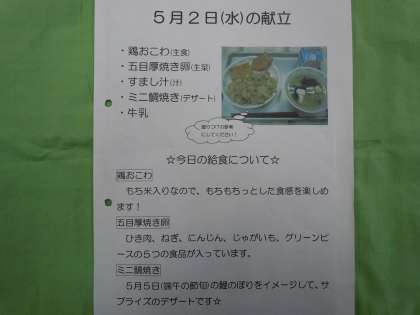 ５月２日(水)の献立
・鶏おこわ(主食)
・五目厚焼き卵(主菜)
・すまし汁(汁)
・ミニ鯛焼き(デザート)
・牛乳
盛りつけの参考
にしてください！
☆今日の給食について☆
鶏おこわ
もち米入りなので、もちもちっとした食感を楽しめ
ます！
五目厚焼き卵
ひき肉、ねぎ、にんじん、じゃがいも、グリーンピ
ースの５つの食品が入っています。
ミニ鯛焼き
５月５日(端午の節句)の鯉のぼりをイメージして、サ
プライズのデザートです☆